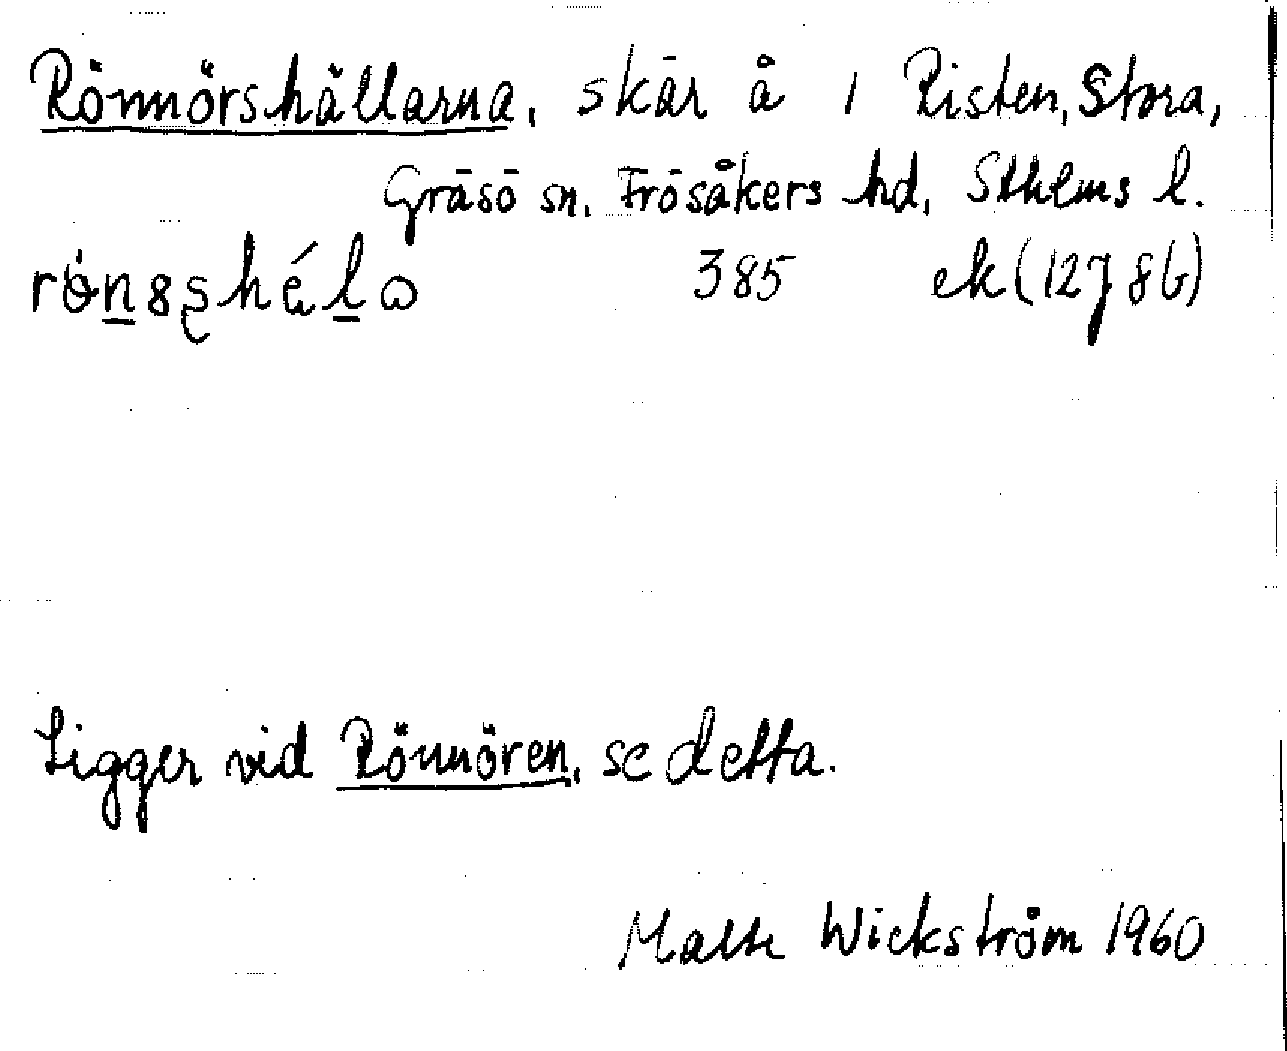 Rönnörshällarna, skär å 1 Risten, Stora,
Gräsö sn, Frösåkers hd, Sthlms l.
385 ek (12786)
Ligger vid Rönnören, se detta.
Malte Wickström 1960